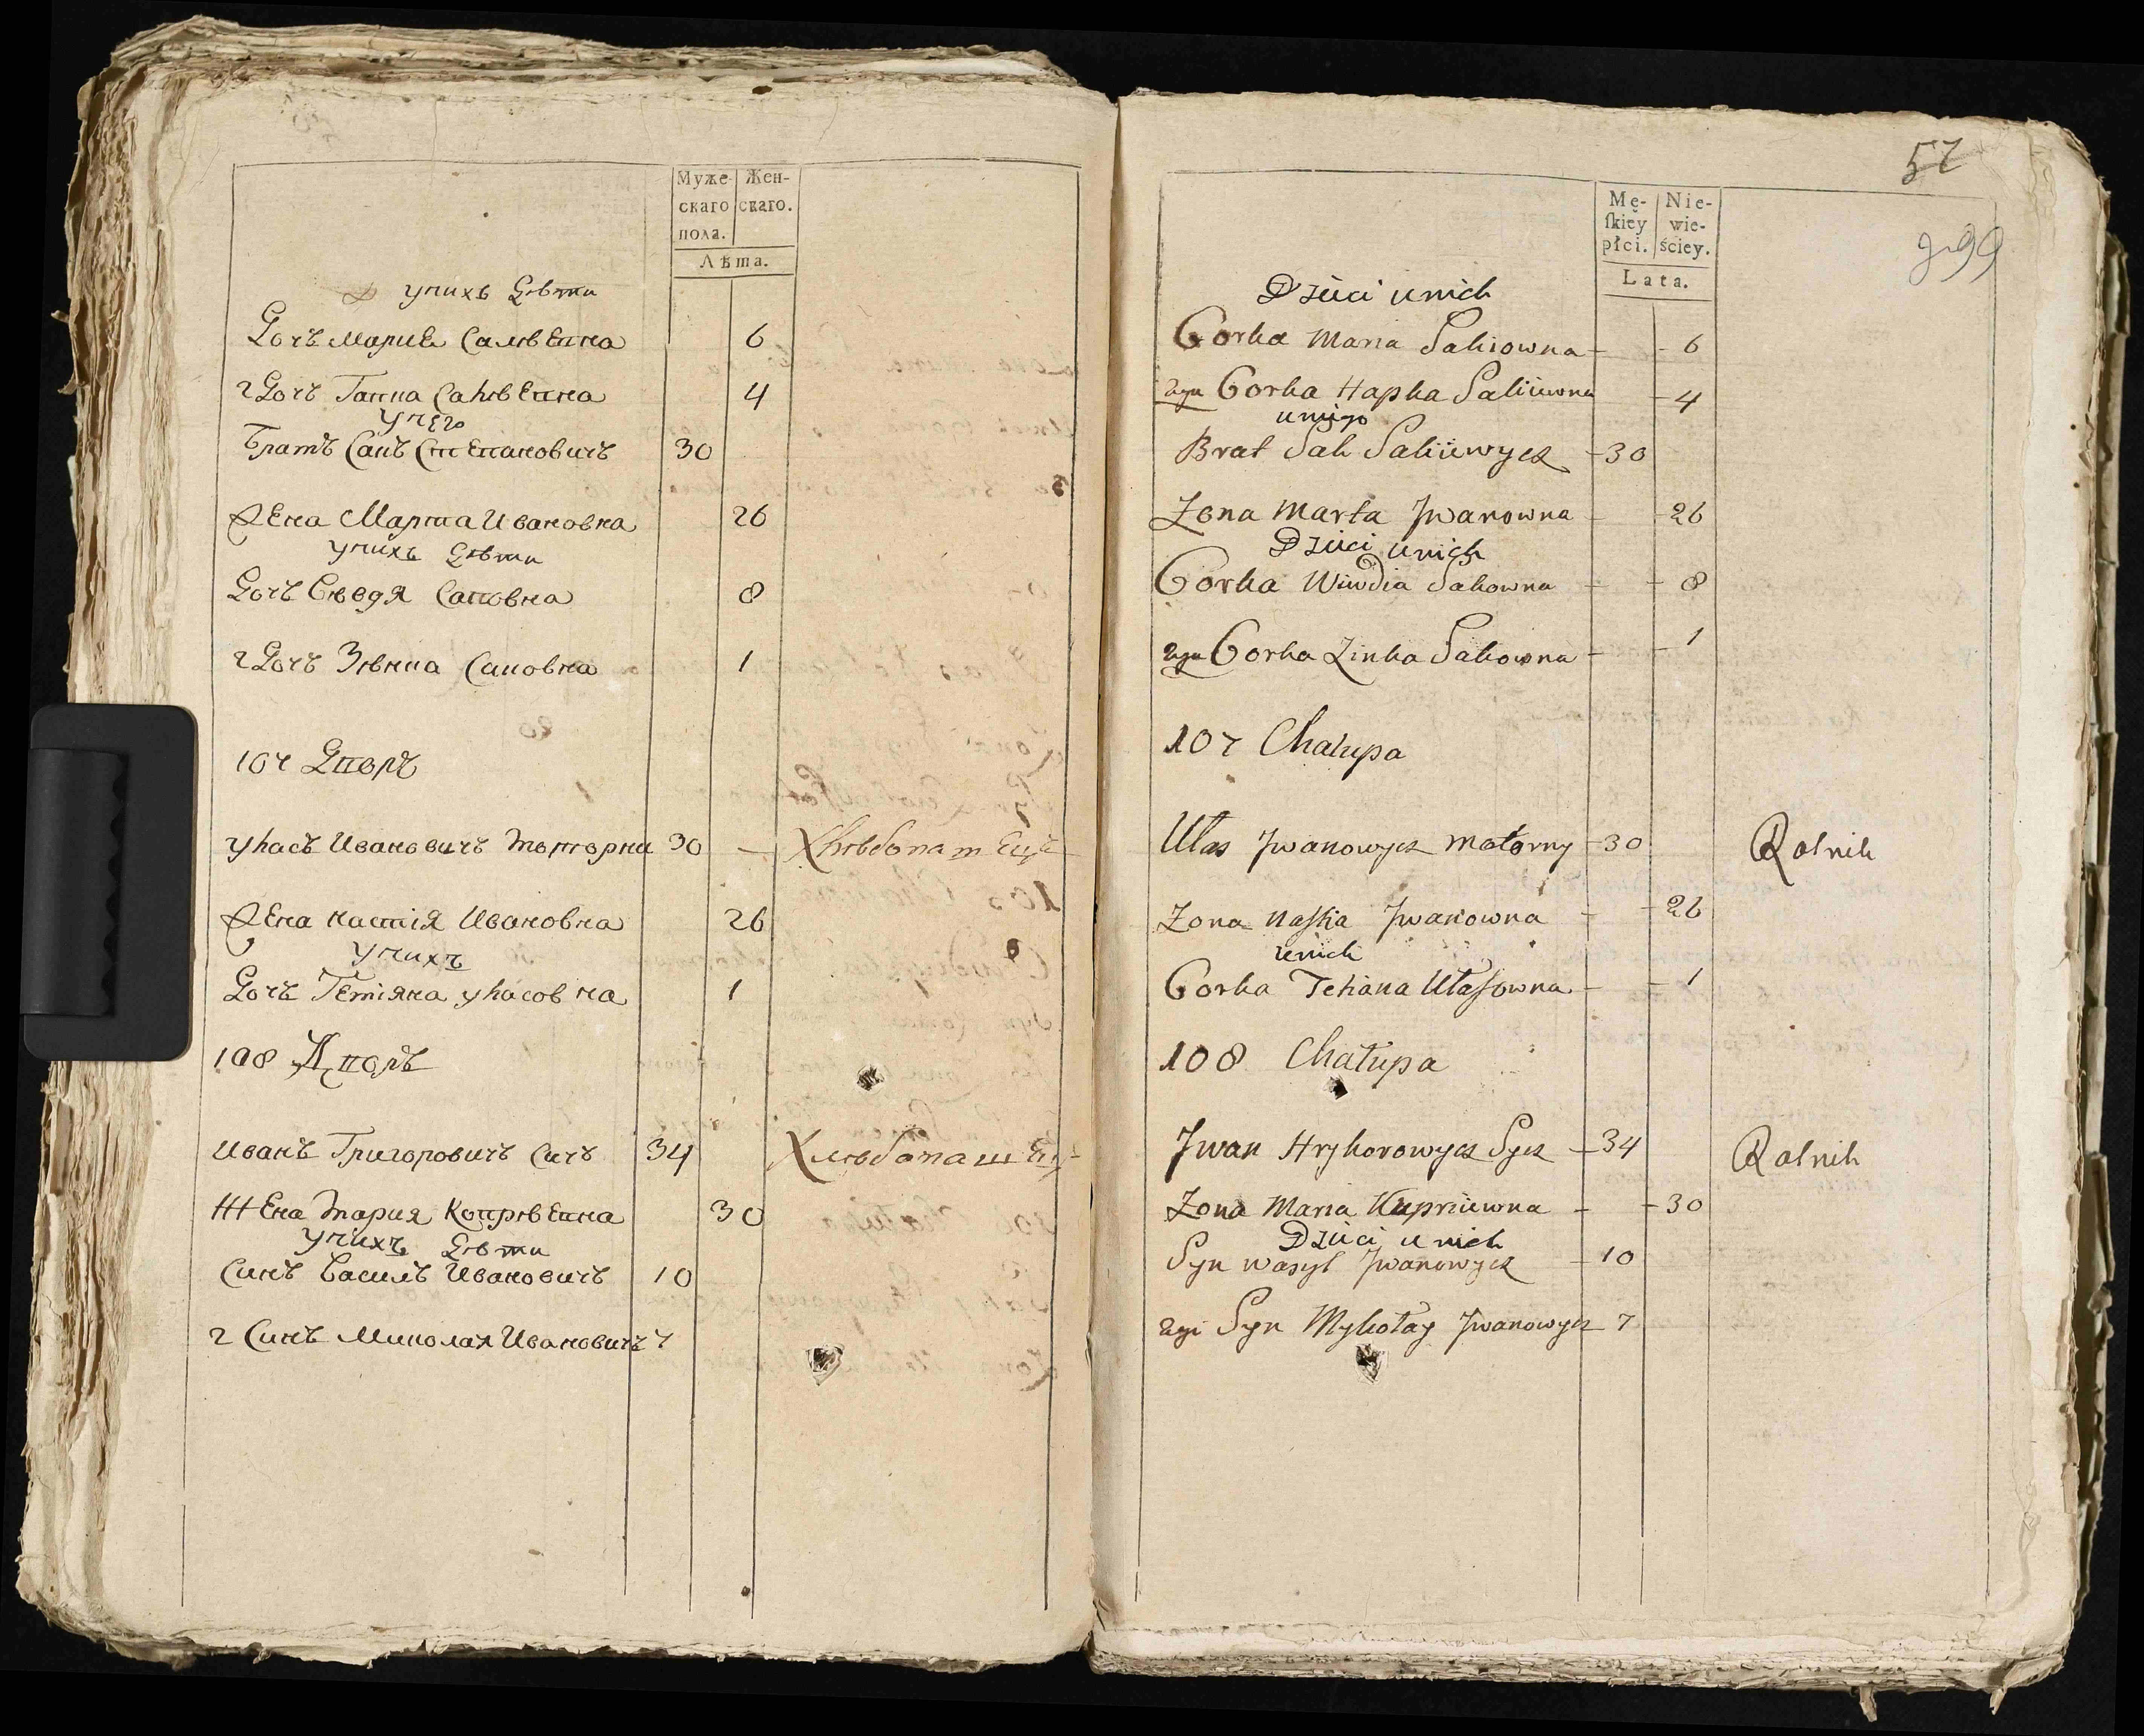 Муже-
скаго
пола.
Жен-
скаго.
Лѣта.
Унихъ Дѣти
Дочъ Мария Сакѣевна 6
2 Дочъ Гапка Сакѣевна 4
Унего
Братъ Сакъ Степановичъ 30
Жена Марта Ивановна 26
Унихъ Дѣти
Дочъ Саковна 8
2 Дочъ Зѣнка Саковна 1
107 Дворъ
Уласъ Ивановичъ Моторни 30 — Хлѣбопашецъ
Жена Настія Ивановна 26
Унихъ
Дочъ Тетіяна Уласовна 1
108 Дворъ
Иванъ Григоровичъ Сичъ 34 Хлѣбопашецъ
Жена Мария Купрѣевна 30
Унихъ Дѣти
Синъ Василъ Ивановичъ 10
2 Синъ Миколая Ивановичъ 7
57
Mę-
ſkiey
płci.
Nie-
wie-
ściey.
Lata.
Dzieci unich
Corka Maria Sakiowna - - 6
2ga Corka Hapka Sakiiewna - 4
uniego
Brat Sak Sakiiewycz - 30
Zona Marta Jwanowna - - 26
Dzieci unich
Corka Wiwdia Sakowna - - 8
2ga Corka Zinka Sakowna - - 1
107 Chałupa
Ułas Jwanowycz Motorny - 30 Rolnik
Zona Naſtia Jwanowna - - 26
unich
Corka Tetiana Ułaſowna - - 1
108 Chałupa
Jwan Hryhorowycz Sycz - 34 Rolnik
Zona Maria Kupriiewna - - 30
Dzieci u nich
Syn Wasyl Jwanowycz - 10
2gi Syn Mykołay Jwanowycz 7